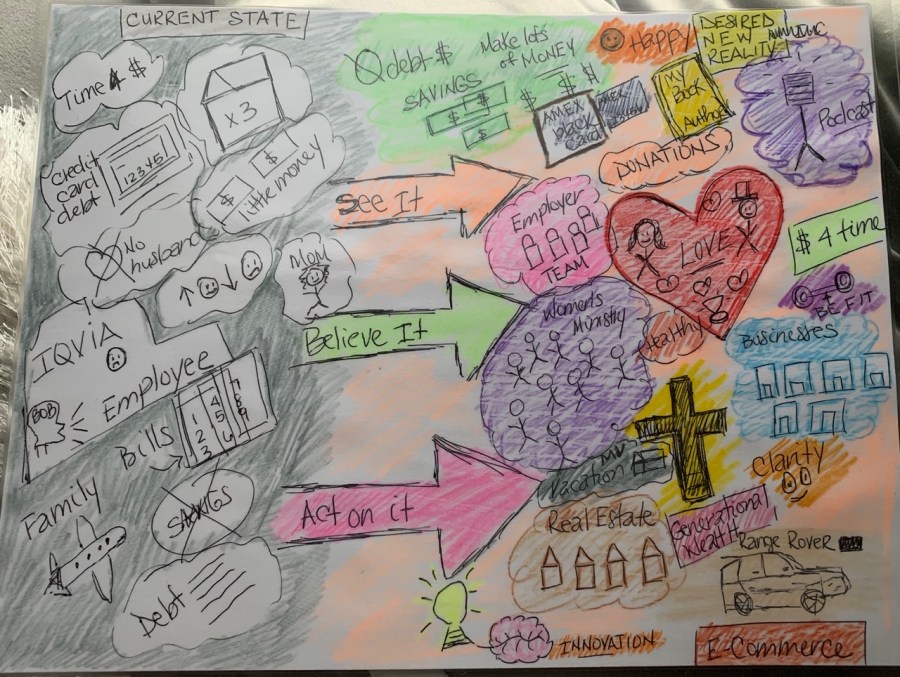 CURRENT STATE
Time 4 $
x 3
Credit
card
debt
12345
$
$
little money
No
husband
Mom
IQVIA
Employee
BOB
Bills
1
2
3
4
5
6
7
8
9
Family
SAVINGS
Debt
See It
Believe It
Act on it
debt $
Make lots
of MONEY
SAVINGS
$
$
$
$
$
$
AMEX
black
Card
Happy
DESIRED
NEW
REALITY!
My
Book
Author
Podcast
DONATIONS
Employer
TEAM
LOVE
$ 4 time
BE FIT
Women's
Ministry
Healthy
Businesses
Vacation
Clarity
Real Estate
Generational
Wealth
Range Rover
INNOVATION
E-Commerce